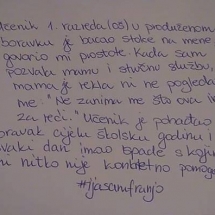 Učenik 1. razreda (OŠ) u produženom
boravku je bacao stolce na mene
govorio mi prostote. Kada sam
pozvala mamu i stručnu službu,
mama je rekla ni ne pogleda
me: "Ne zanima me šta ova
za reći." Učenik je pohađao
boravak cijelu školsku godinu i
svaki dan imao ispade s kojim
nitko nije konkretno pomogao
#jasamfranjo